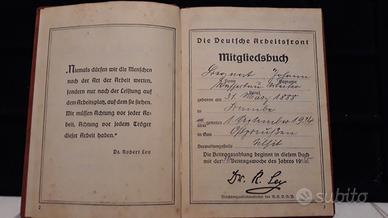 „Niemals dürfen wir die Menschen
nach der Art der Arbeit werten,
sondern nur nach der Leistung auf
dem Arbeitsplatz, auf dem sie stehen.
Wir müssen Achtung vor jeder
Arbeit, Achtung vor jedem Träger
dieser Arbeit haben."
Dr. Robert Ley
2
Die Deutsche Arbeitsfront
Mitgliedsbuch
Johann
geboren am 31. März 1888
1 September 1934
in Gau Ostpreußen
Tilsit
Die Beitragszahlung beginnt in diesem Buch
mit der Beitragswoche des Jahres
Dr. R. Ley
subito